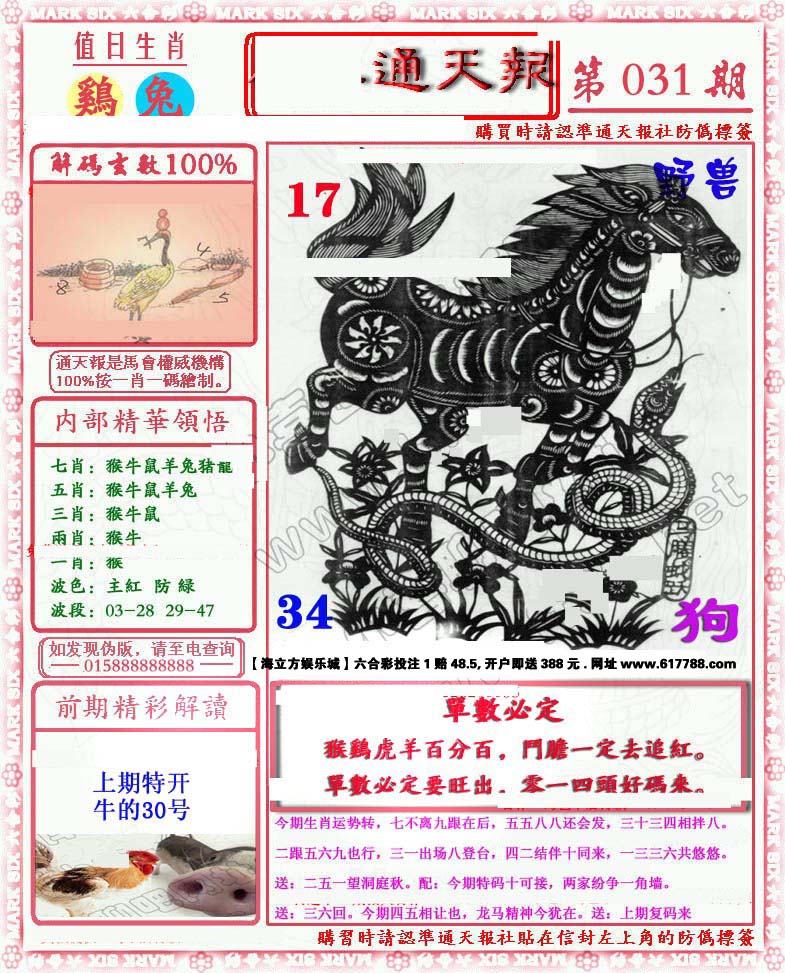 MARK SIX 六合彩 MARK SIX 六合彩 MARK SIX 六合彩 MARK SIX 六合彩 MARK SIX 六合彩
值日生肖
鷄 兔
通天報
第 031 期
購買時請認準通天報社防偽標簽
解碼玄數100%
4
8
5
通天報是馬會權威機構
100%按一肖一碼繪制。
内部精華領悟
七肖：猴牛鼠羊兔猪龍
五肖：猴牛鼠羊兔
三肖：猴牛鼠
兩肖：猴牛
一肖：猴
波色：主紅 防緑
波段：03-28 29-47
如发现伪版，请至电查询
015888888888
前期精彩解讀
上期特开
牛的30号
17
野兽
34
狗
【海立方娱乐城】六合彩投注 1 赔 48.5, 开户即送 388 元 . 网址 www.617788.com
單數必定
猴鷄虎羊百分百，鬥膽一定去追紅。
單數必定要旺出，零一四頭好碼來。
今期生肖运势转，七不离九跟在后，五五八八还会发，三十三四相拌八。
二跟五六九也行，三一出场八登台，四二结伴十同来，一三三六共悠悠。
送：二五一望洞庭秋。配：今期特码十可接，两家纷争一角墙。
送：三六回。今期四五相让也，龙马精神今犹在。送：上期复码来
購習時請認準通天報社貼在信封左上角的防偽標簽